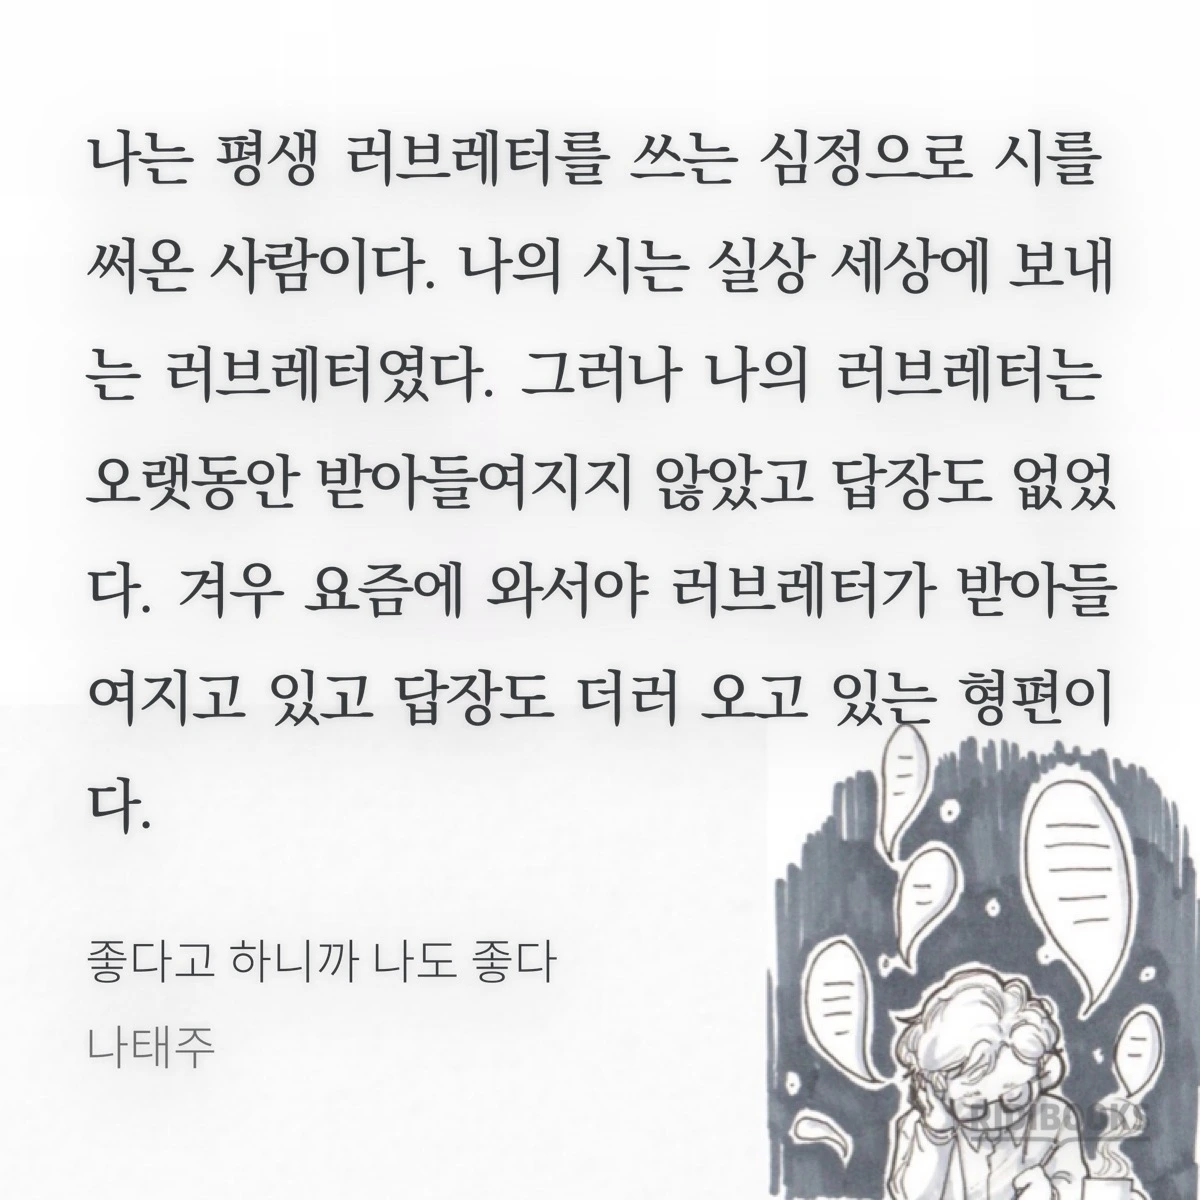 나는 평생 러브레터를 쓰는 심정으로 시를
써온 사람이다. 나의 시는 실상 세상에 보내
는 러브레터였다. 그러나 나의 러브레터는
오랫동안 받아들여지지 않았고 답장도 없었
다. 겨우 요즘에 와서야 러브레터가 받아들
여지고 있고 답장도 더러 오고 있는 형편이
다.
좋다고 하니까 나도 좋다
나태주
RIDIBOOKS